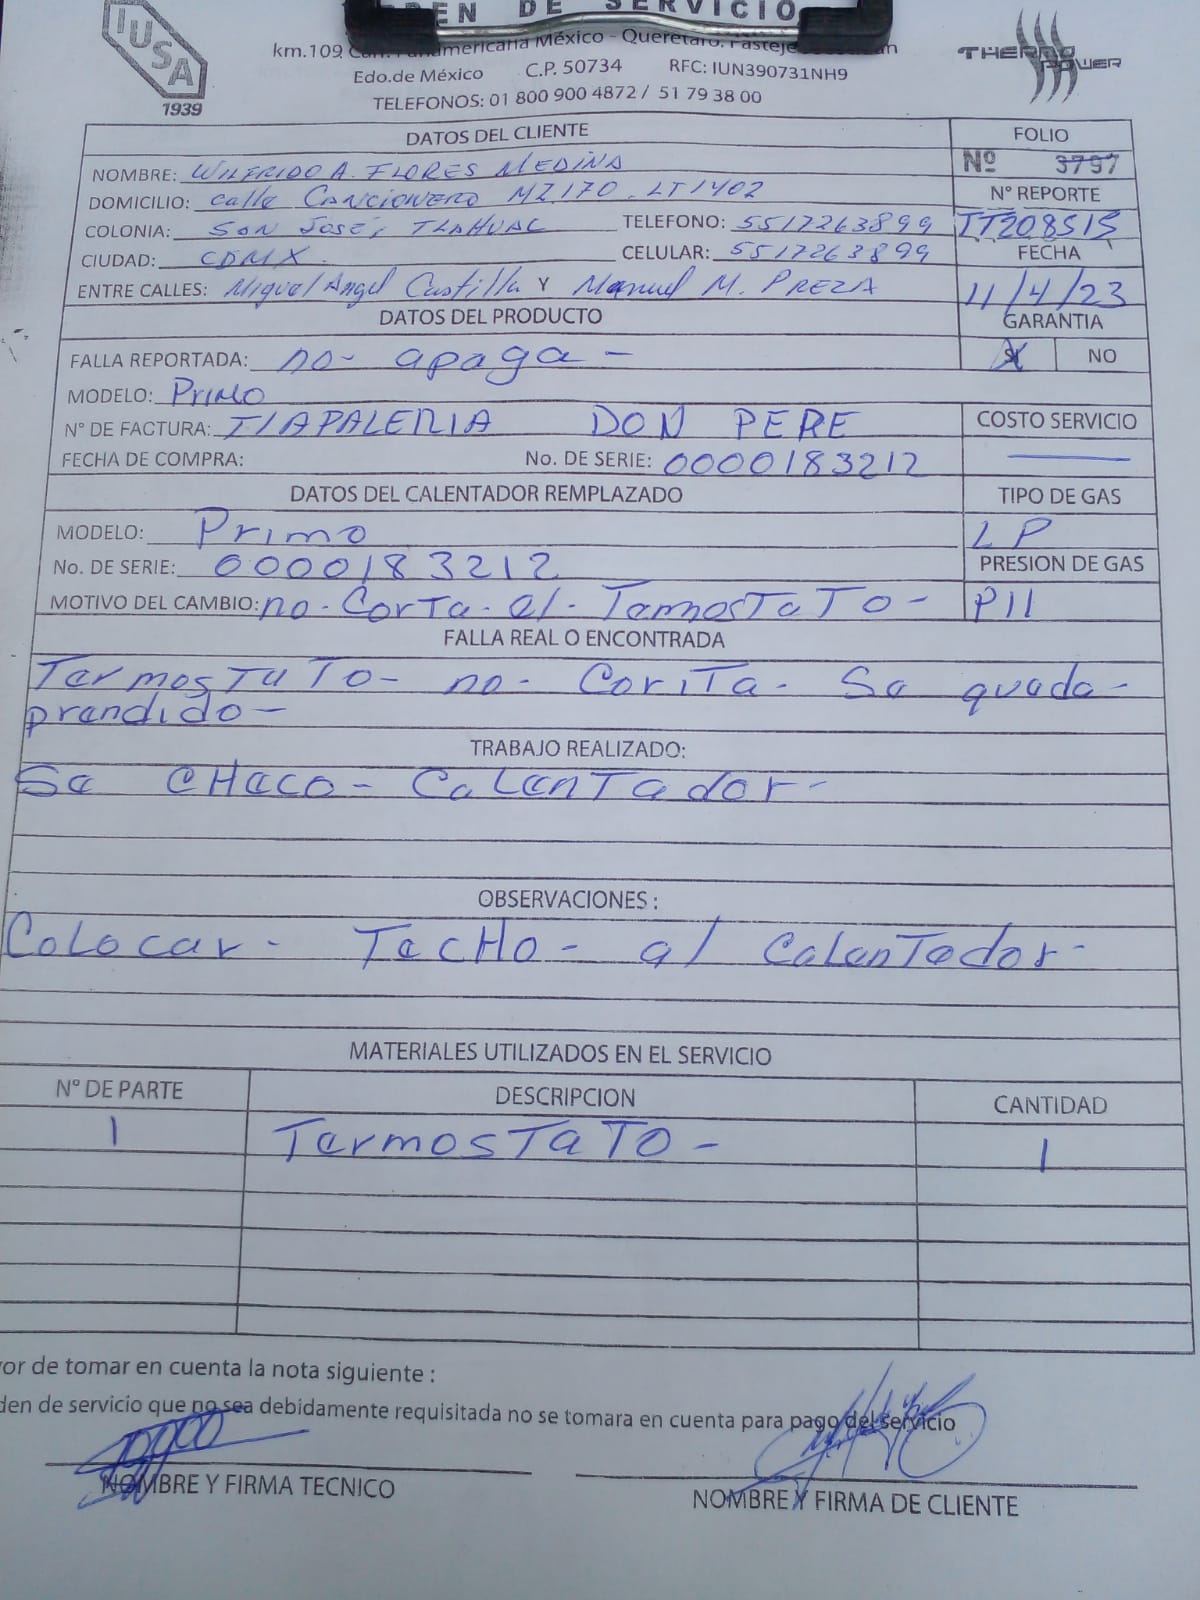 ORDEN DE SERVICIO
IUSA
1939
km.109 Carr. Panamericana México - Querétaro. Pastejé
Edo.de México C.P. 50734 RFC: IUN390731NH9
TELEFONOS: 01 800 900 4872 / 51 79 38 00
THERMO POWER
DATOS DEL CLIENTE
FOLIO
Nº 3797
NOMBRE: WILFRIDO A. FLORES MEDINA
DOMICILIO: calle CANCIONERO MZ170 - LT1402
Nº REPORTE
COLONIA: SAN JOSE, TLAHUAC TELEFONO: 5517263899
TT208515
CIUDAD: CDMX. CELULAR: 5517263899
FECHA
ENTRE CALLES: Miguel Angel Castilla Y Manuel M. PREZA
11/4/23
DATOS DEL PRODUCTO
GARANTIA
FALLA REPORTADA: no- apaga -
SI NO
MODELO: Primo
Nº DE FACTURA: TLAPALERIA DON PERE
COSTO SERVICIO
FECHA DE COMPRA: No. DE SERIE: 0000183212
DATOS DEL CALENTADOR REMPLAZADO
TIPO DE GAS
MODELO: Primo
LP
No. DE SERIE: 0000183212
PRESION DE GAS
MOTIVO DEL CAMBIO: no- CorTa- el- TermosTaTO-
P11
FALLA REAL O ENCONTRADA
TermosTaTO- no- CoriTa- Se queda-
prendido-
TRABAJO REALIZADO:
Se CHeco- CaLenTador-
OBSERVACIONES :
CoLocar- TecHo- al CaLenTador-
MATERIALES UTILIZADOS EN EL SERVICIO
Nº DE PARTE DESCRIPCION CANTIDAD
1 TermosTaTO- 1
vor de tomar en cuenta la nota siguiente :
den de servicio que no sea debidamente requisitada no se tomara en cuenta para pago del servicio
NOMBRE Y FIRMA TECNICO
NOMBRE Y FIRMA DE CLIENTE